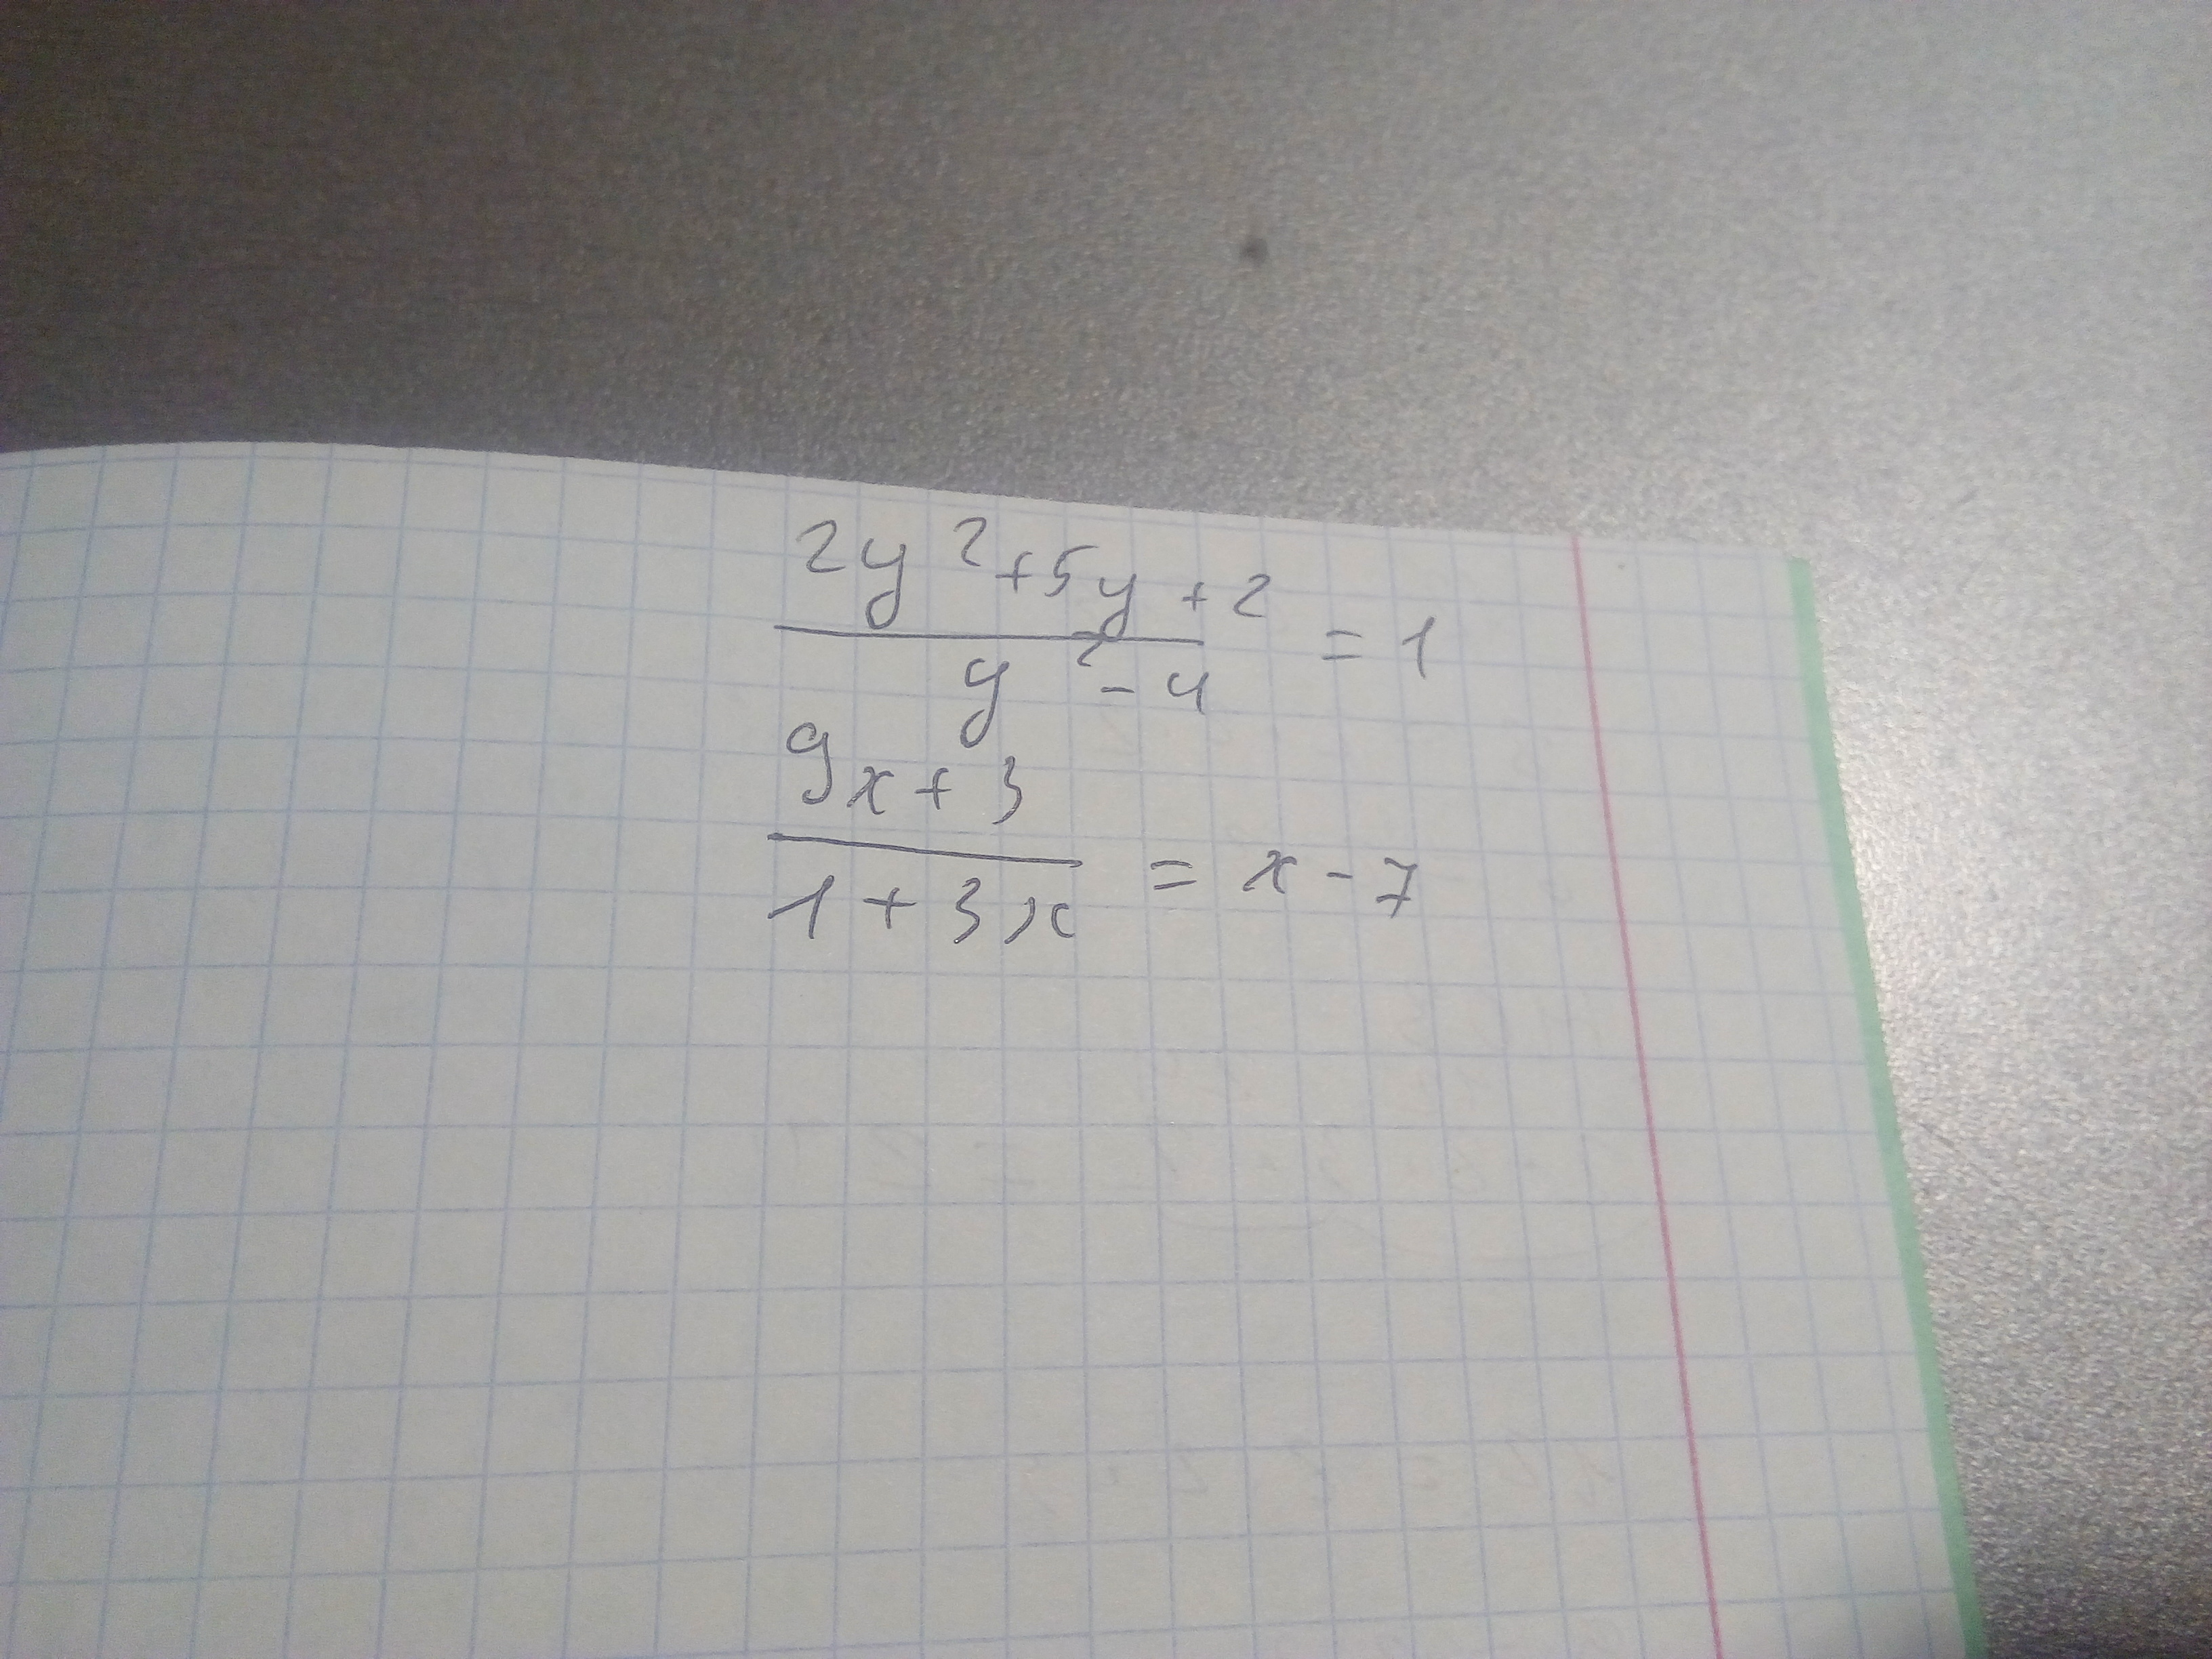 2y²+5y+2
y²-4 = 1
9x+3
1+3x = x-7